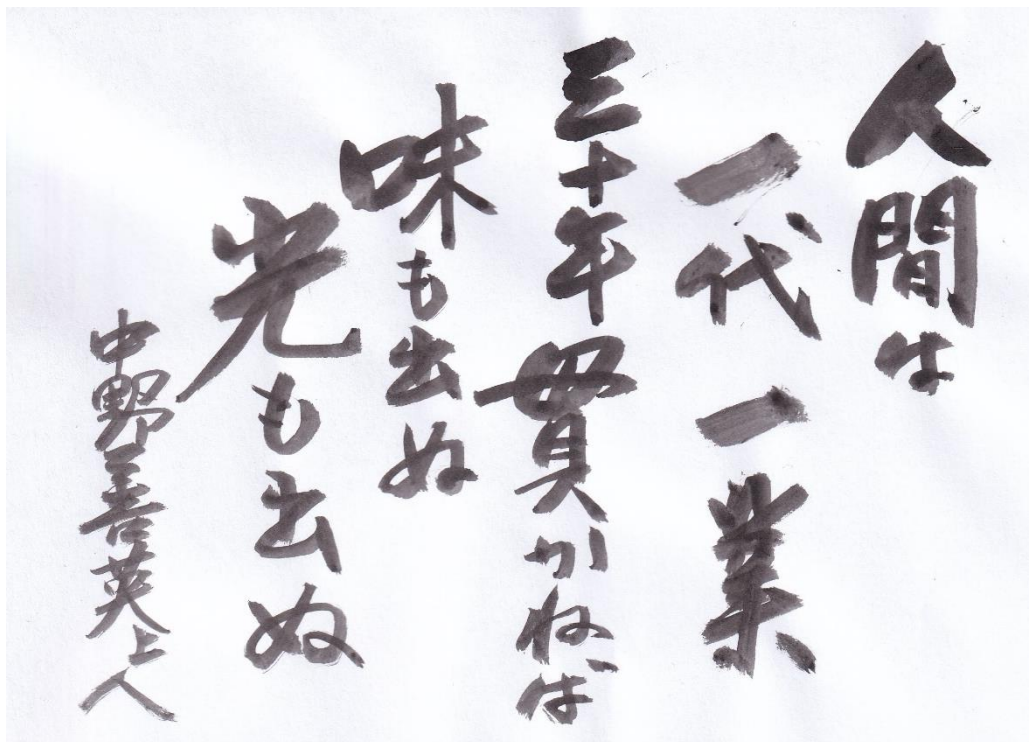 人間は
一代 一業
三十年 貫かねば
味も出ぬ
光も出ぬ
中野善英上人